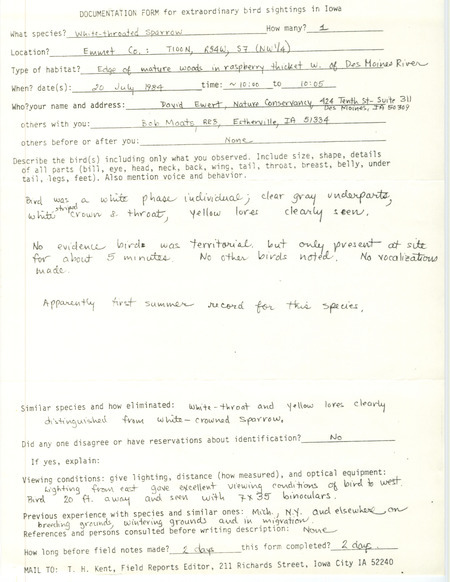 DOCUMENTATION FORM for extraordinary bird sightings in Iowa
What species? White-throated Sparrow How many? 1
Location? Emmet Co.: T100N, R34W, S7 (NW¼)
Type of habitat? Edge of mature woods in raspberry thicket w. of Des Moines River
When? date(s): 20 July 1984 time: ~10:00 to 10:05
Who?your name and address: David Ewert, Nature Conservancy, 424 Tenth St- Suite 311
Des Moines, IA 50309
others with you: Bob Moats, RR3, Estherville, IA 51334
others before or after you: None
Describe the bird(s) including only what you observed. Include size, shape, details
of all parts (bill, eye, head, neck, back, wing, tail, throat, breast, belly, under
tail, legs, feet). Also mention voice and behavior.
Bird was a white phase individual; clear gray underparts,
white striped crown & throat, yellow lores clearly seen.
No evidence bird was territorial but only present at site
for about 5 minutes. No other birds noted. No vocalizations
made.
Apparently first summer record for this species.
Similar species and how eliminated: White-throat and yellow lores clearly
distinguished from white-crowned sparrow.
Did any one disagree or have reservations about identification? No
If yes, explain:
Viewing conditions: give lighting, distance (how measured), and optical equipment:
Lighting from east gave excellent viewing conditions of bird to west.
Bird 20 ft. away and seen with 7x35 binoculars.
Previous experience with species and similar ones: Mich., N.Y. and elsewhere on
breeding grounds, wintering grounds and in migration.
References and persons consulted before writing description: None
How long before field notes made? 2 days this form completed? 2 days
MAIL TO: T. H. Kent, Field Reports Editor, 211 Richards Street, Iowa City IA 52240